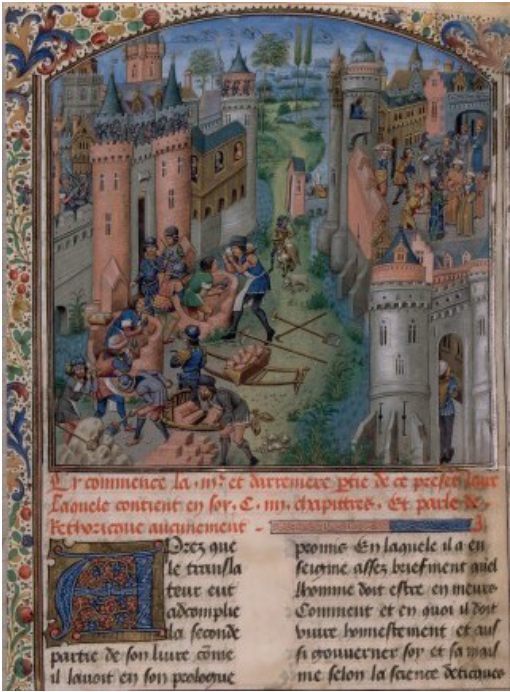 Cy commence la .iii.e et darreniere ptie de ce present liure
Laquele contient en soy. C. iiii. chapitres. Et parle de
Rethoricque aucunement
Aprez que
le transla
teur eut
adcomplie
la seconde
partie de son liure cõme
il lauoit en son prologue
promis En laquele il a en
seigne assez briefment quel
lhomme doit estre en meurs
Comment et en quoi il doit
viure honnestement et aus
si gouuerner soy et sa mais
me selon la science deticques